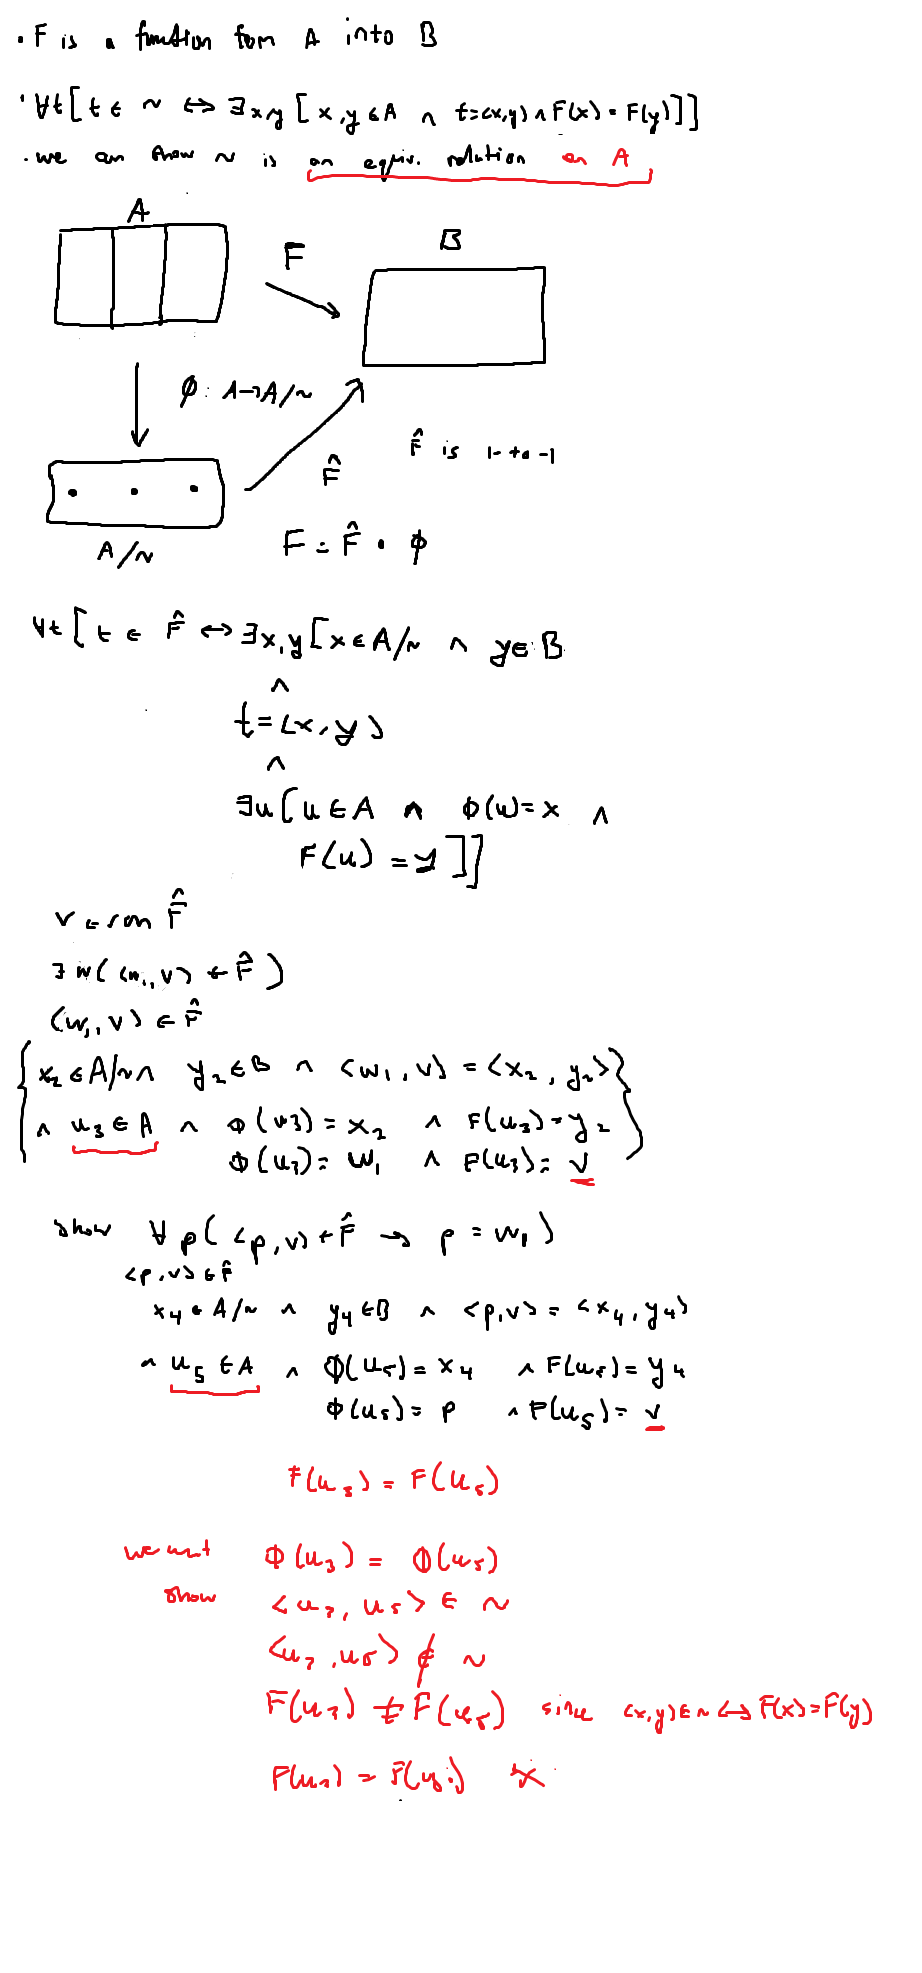 · F is a function from A into B
· ∀t[t ∈ ~ ⇔ ∃x,y[x,y ∈ A ∧ t=<x,y> ∧ F(x) = F(y)]]
· we can show ~ is an equiv. relation on A
A
B
F
φ: A→A/~
F̂ is 1-to-1
F̂
A/~
F = F̂ · φ
∀t[t ∈ F̂ ↔ ∃x,y[x ∈ A/~ ∧ y ∈ B
∧
t = <x,y>
∧
∃u[u ∈ A ∧ φ(u) = x ∧
F(u) = y]]
v ∈ ran F̂
∃w(<w,v> ∈ F̂)
<w₁,v> ∈ F̂
{x₂ ∈ A/~ ∧ y₂ ∈ B ∧ <w₁,v> = <x₂,y₂>}
∧ u₃ ∈ A ∧ φ(u₃) = x₂ ∧ F(u₃) = y₂
φ(u₃) = w₁ ∧ F(u₃) = v
show ∀p(<p,v> ∈ F̂ → p = w₁)
<p,v> ∈ F̂
x₄ ∈ A/~ ∧ y₄ ∈ B ∧ <p,v> = <x₄,y₄>
∧ u₅ ∈ A ∧ φ(u₅) = x₄ ∧ F(u₅) = y₄
φ(u₅) = p ∧ F(u₅) = v
F(u₃) = F(u₅)
we want φ(u₃) = φ(u₅)
show <u₃,u₅> ∈ ~
<u₃,u₅> ∉ ~
F(u₃) ≠ F(u₅) since <x,y> ∈ ~ ↔ F(x)=F(y)
F(u₃) = F(u₅) ※